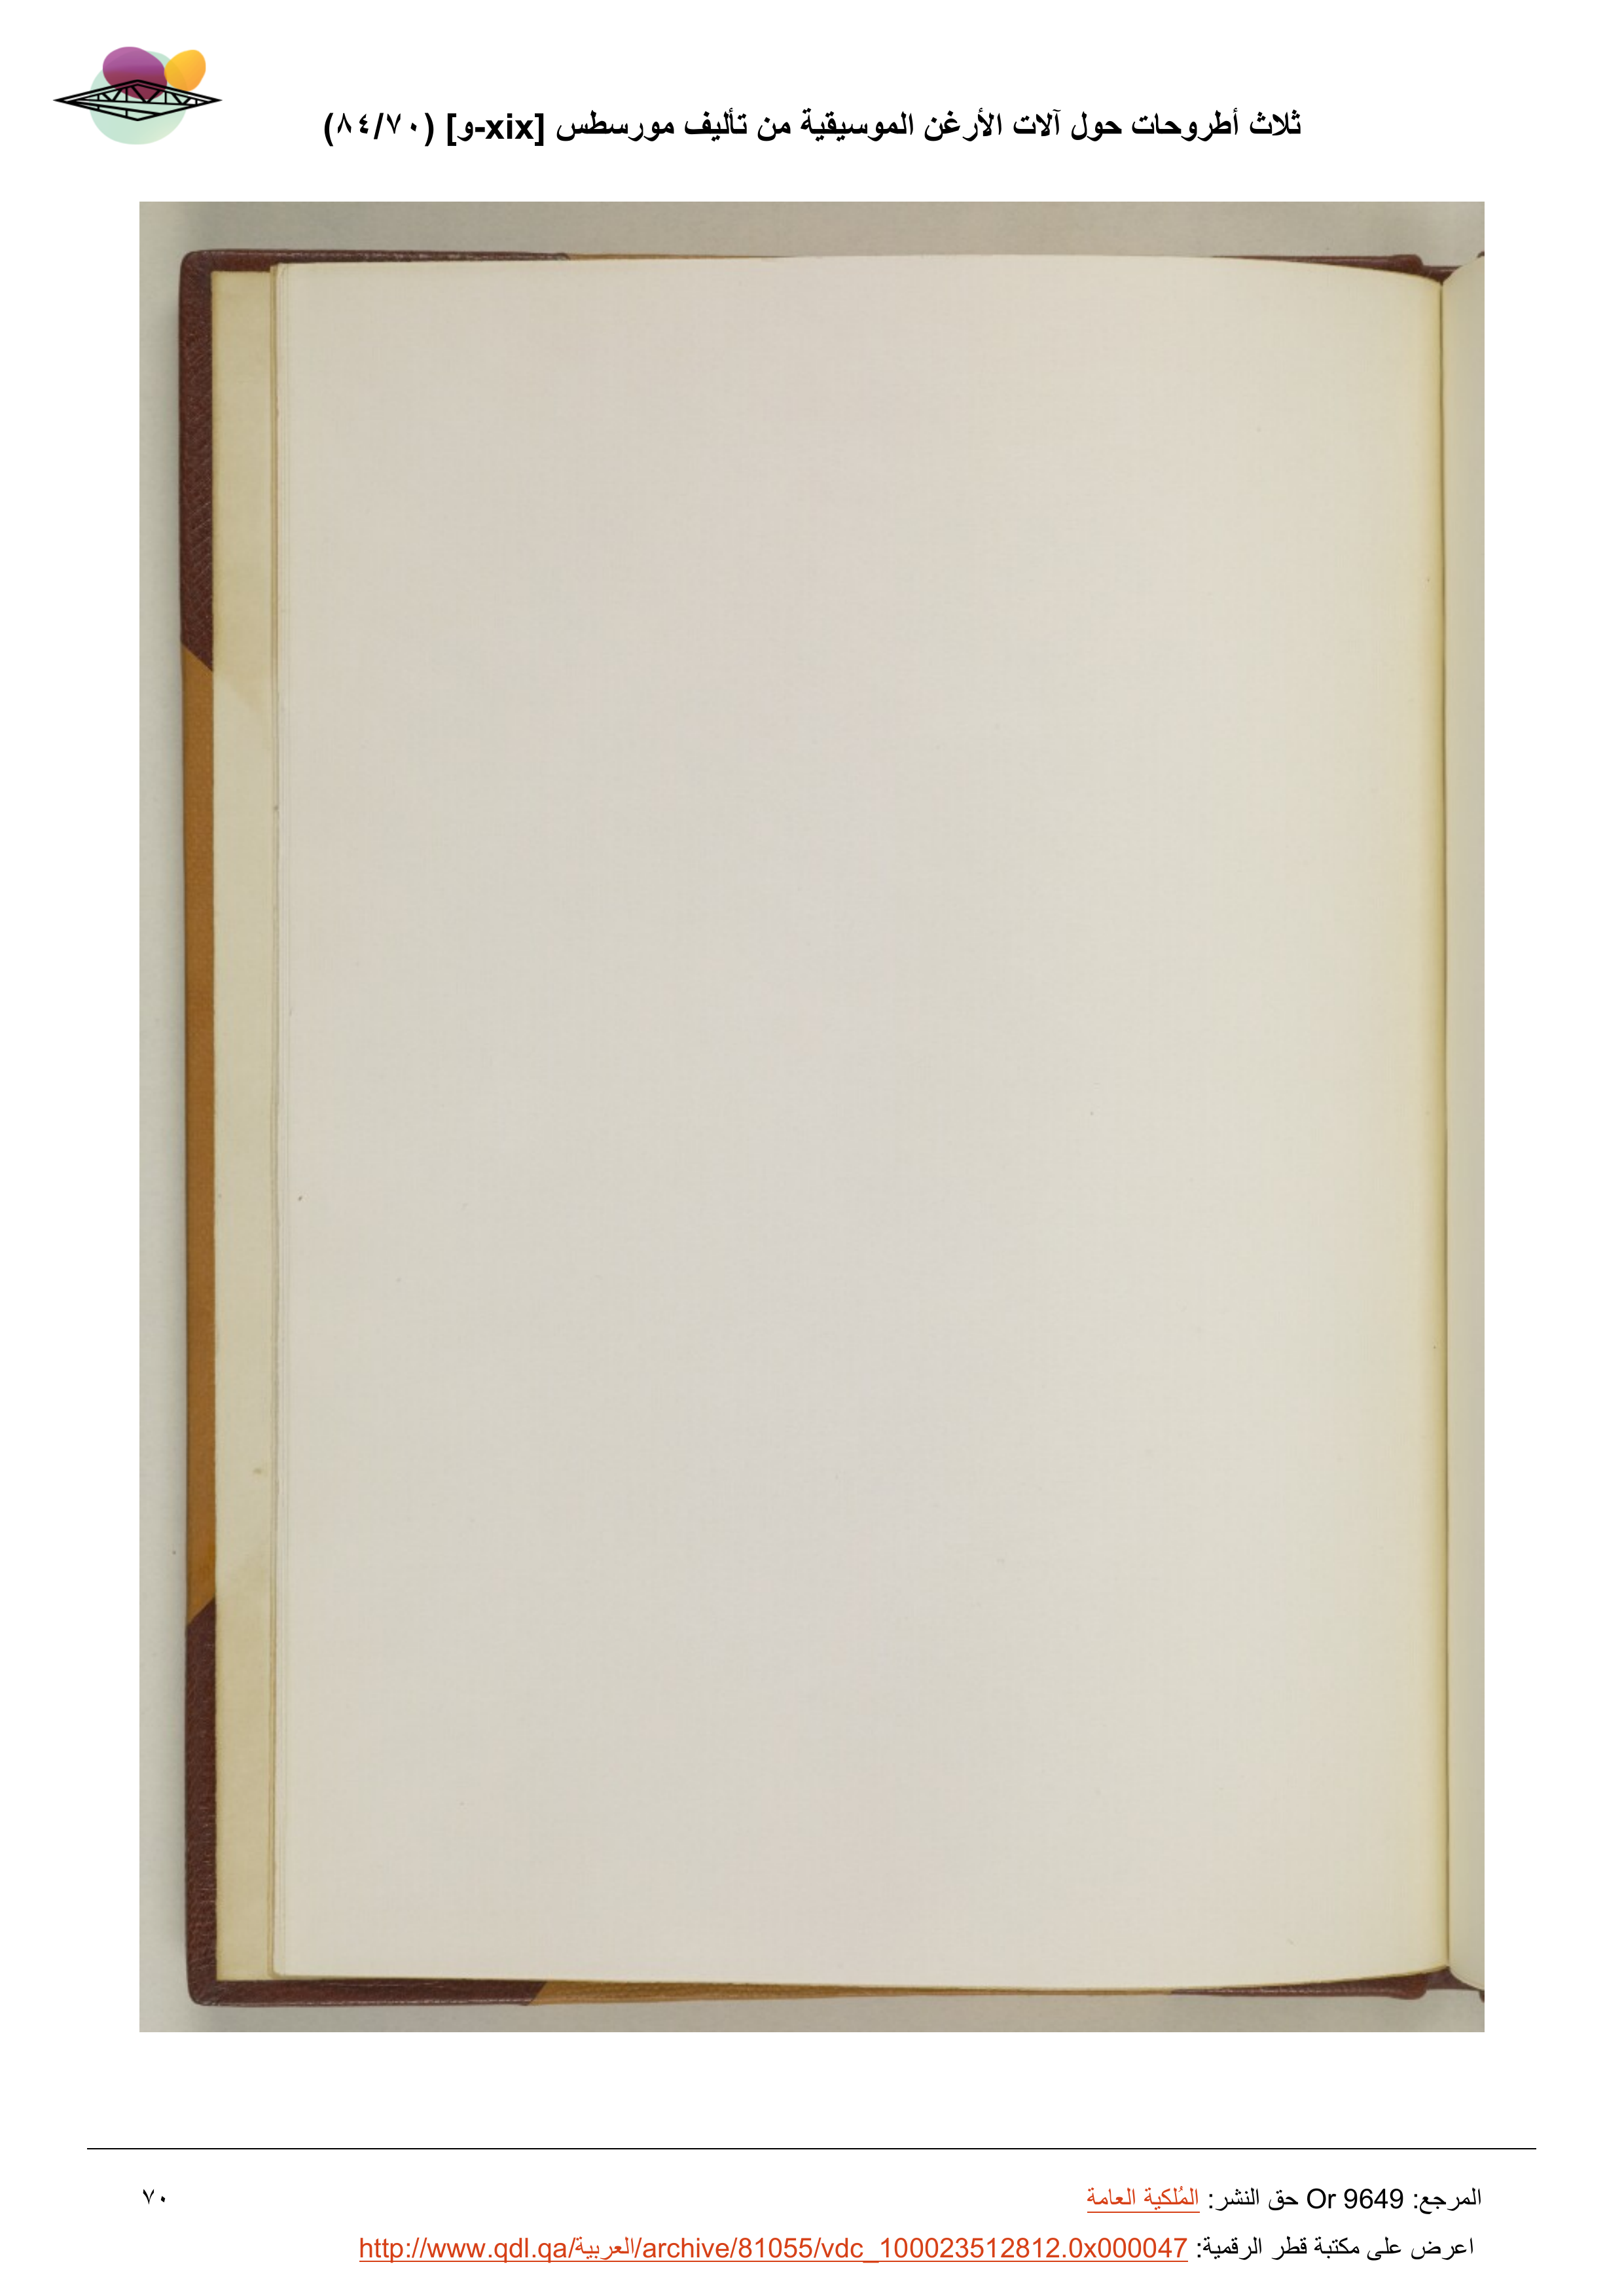 ثلاث أطروحات حول آلات الأرغن الموسيقية من تأليف مورسطس [xix-و] (٨٤/٧٠)
المرجع: Or 9649 حق النشر: المُلكية العامة
٧٠
اعرض على مكتبة قطر الرقمية: http://www.qdl.qa/العربية/archive/81055/vdc_100023512812.0x000047